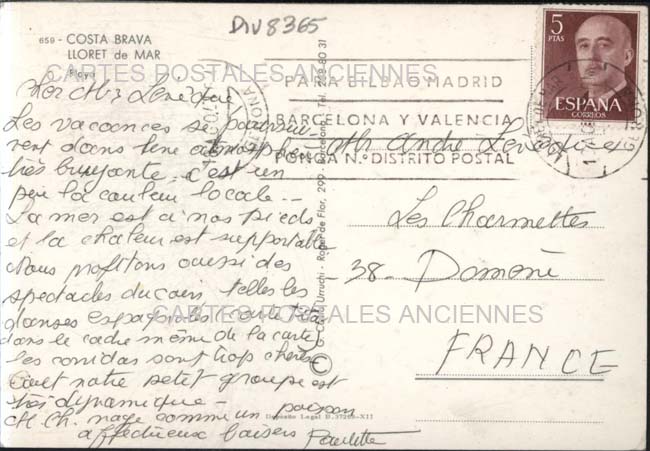 DIV8365
659 - COSTA BRAVA
LLORET de MAR
Playa
CARTES POSTALES ANCIENNES
Les vacances se poursui
vent dans une atmosphère
très bruyante. c'est un
peu la couleur locale --
La mer est à nos pieds
et la chaleur est supportable
Nous profitons aussi des
spectacles du coin, telles les
danses espagnoles
dans le cadre même de la carte
les corridas sont trop chères
tout notre petit groupe est
très dynamique -
M Ch. nage comme un poisson
affectueux baisers Paulette
Deposito Legal B. 37289-XII
Urruchi - Roger de Flor, 299 - Barcelona - Tel. 80 31
PARA BILBAO MADRID
BARCELONA Y VALENCIA
PONGA N.º DISTRITO POSTAL
5
PTAS
ESPAÑA
CORREOS
Mr André Levêque
Les Charmettes
38 - Domène
FRANCE
CARTES POSTALES ANCIENNES